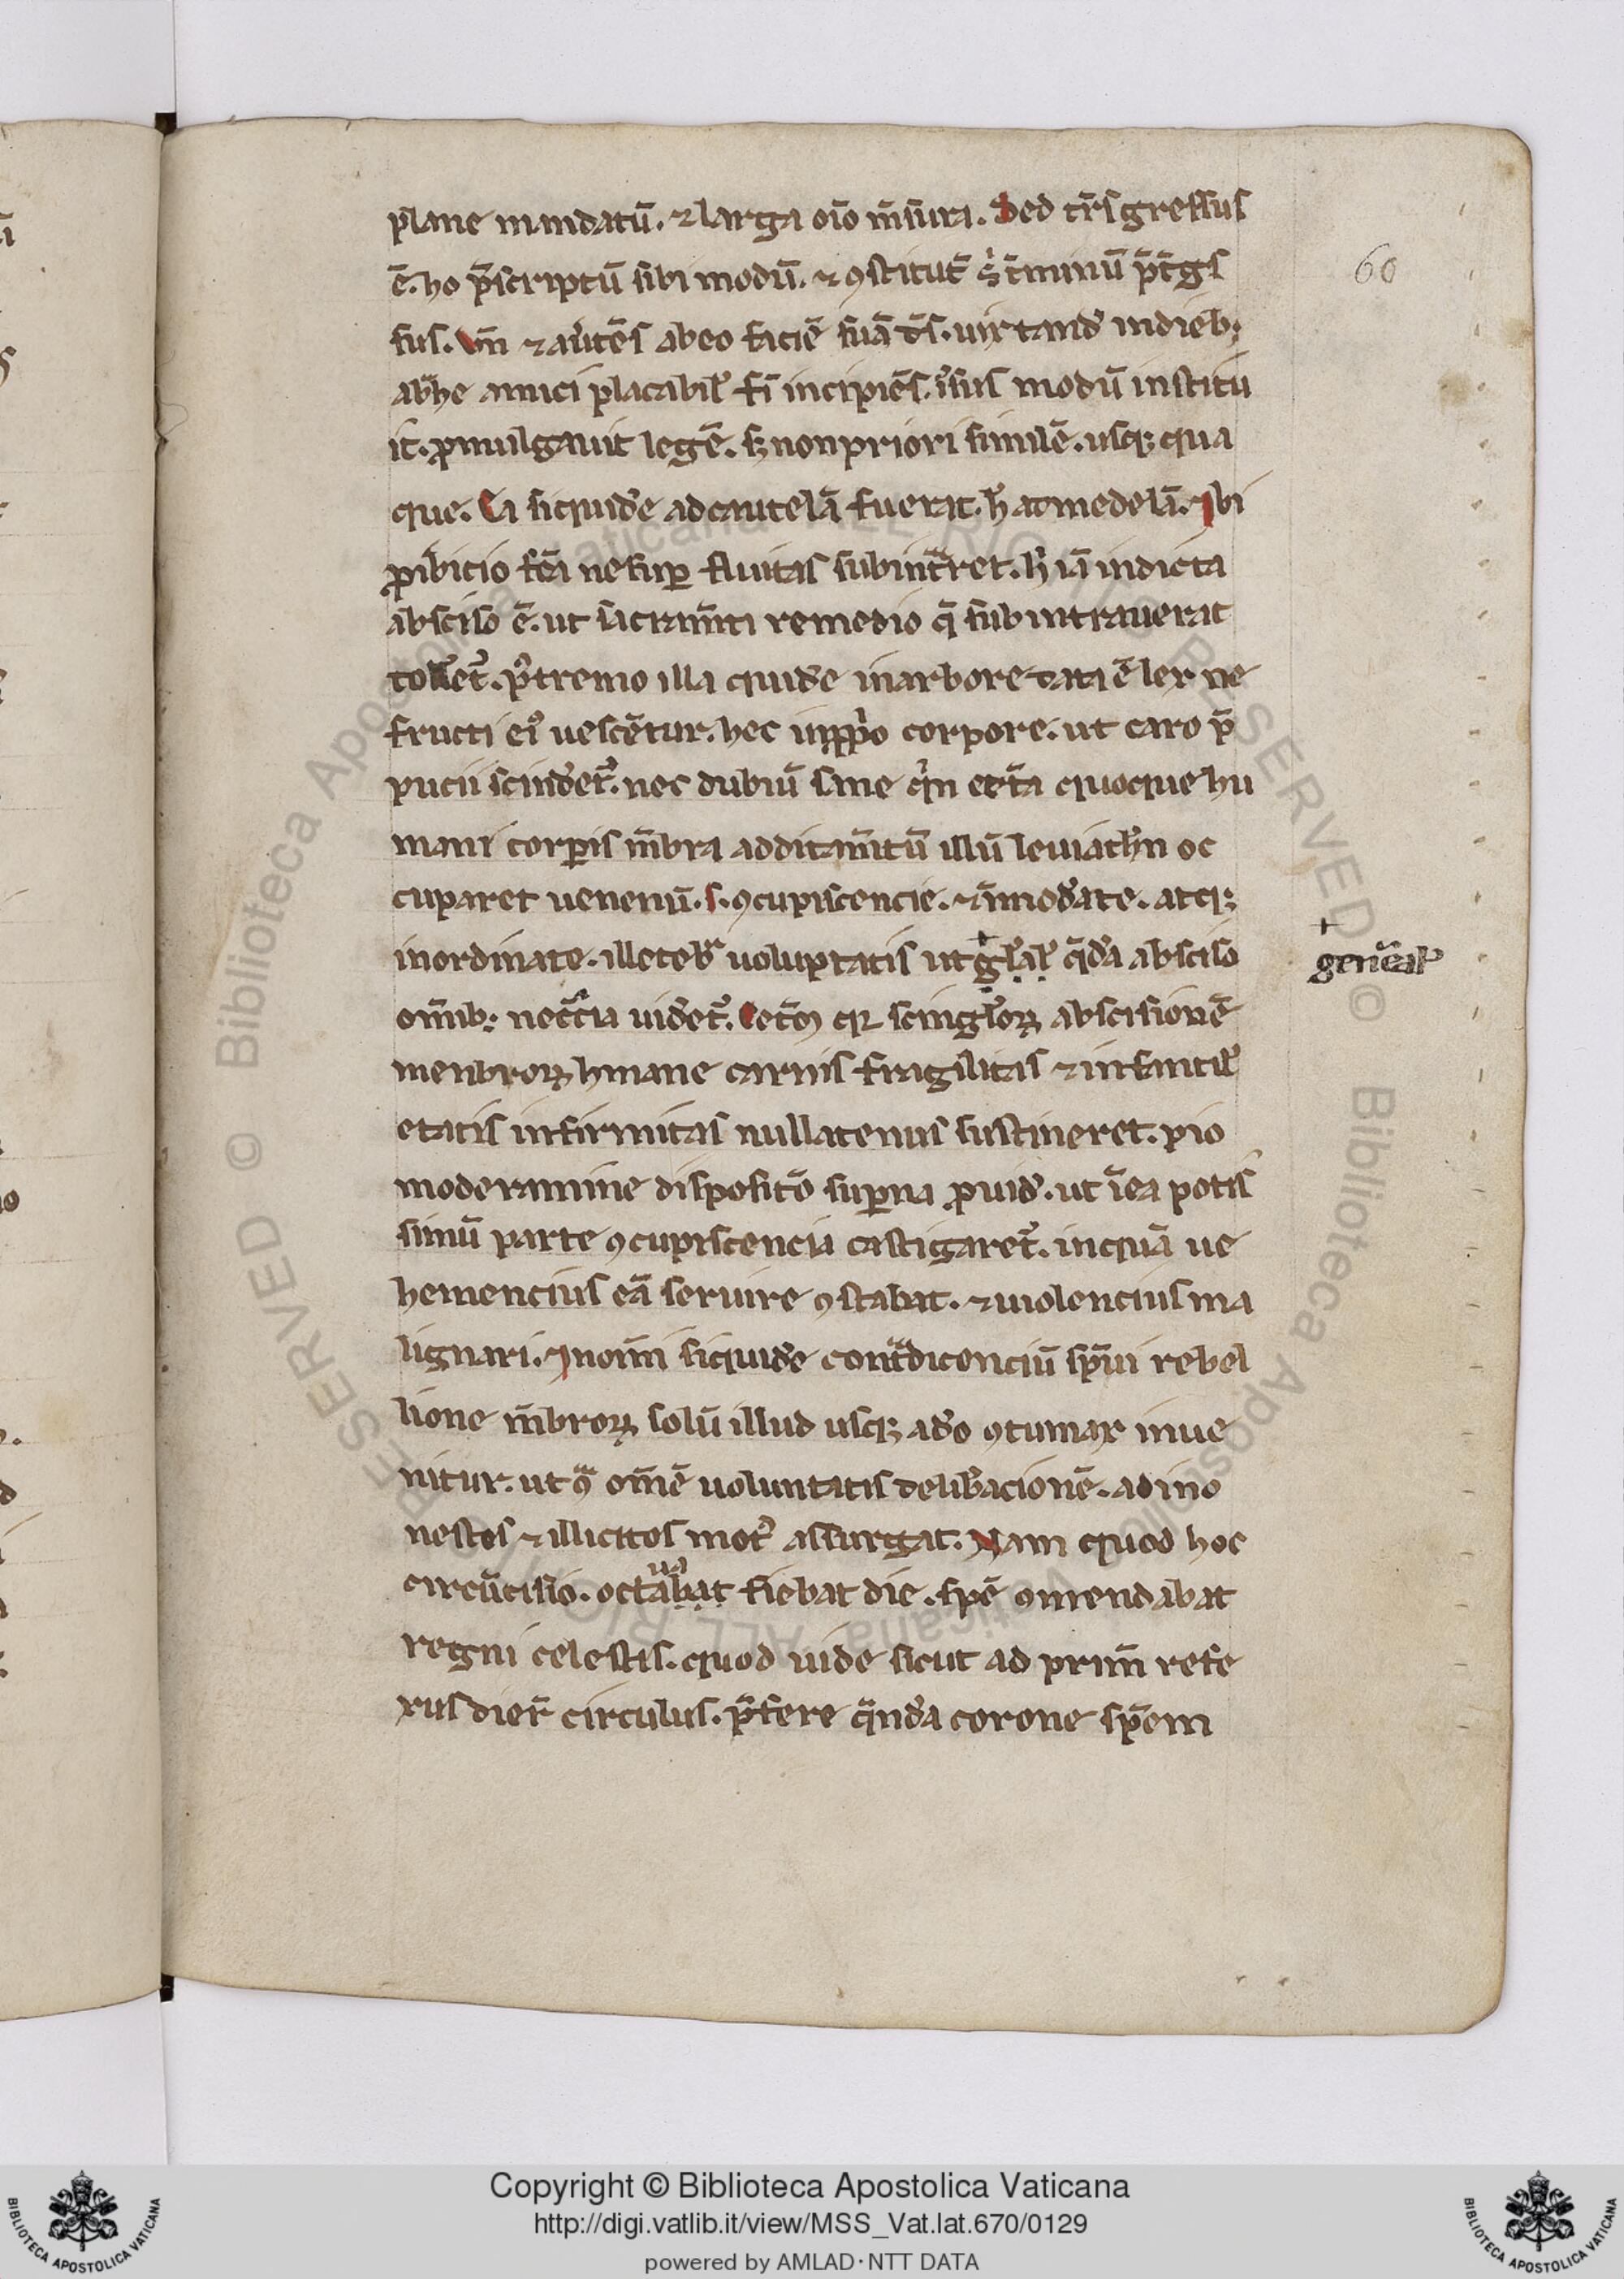 plane mandatū. ⁊ larga oīo m̄sura. Sed trᷤ̄sgressus
ē. ho p̄scriptū sibi modū. ⁊ ꝯstitutū s̓ t̄minū p̄t̄gs
sus. Vn̄ ⁊ au̓tēs ab eo faciē suā d̄s. uix tand̓ in dieb;
abr̓he amici placabil̓ fi̓ incipiēs. modū institu
it. ꝓmulgauit legē. sꝫ non priori similē. usqꝫ qua
que. Ea siquid̓e ad cautelā fuerat. h̓ ad medelā. Ibi
ꝓibicio fc̄a ne suꝑfluitas subint̓ret. h̓ iā indicta
abscisio ē. ut sacram̄ti remedio q̄ subintrauerat
toll̓et̓. P̓tremo illa quid̓e in arbore data ē lex ne
fructi ei᷒ uescētur. hec in ꝓp̓o corpore. ut caro p̄
pucii scind̓et̓. nec dubiū sane q̓n cet̄a quoque hu
mani corꝑis m̄bra additam̄tū illū leuiath̓n oc
cuparet uenenū. s. ꝯcupiscencie. ⁊ īmod̓ate. atqꝫ
inordinate. illecebr̓ uoluptatis ut gl̓al̓ q̄d̓a abscisio
om̄ib; necc̓ia uidet̓. Cet̄ꝝ qꝛ scingl̓oꝝ abscisionē
menbroꝝ hmane carnis fragilitas ⁊ infantil̓
etatis infirmitas nullatenus sustineret. pio
moderamine dispositō suꝑna ꝓuid̓. ut ī ea potis
simū parte ꝯcupiscencia castigaret̓. in quā ue
hemencius eā seruire ꝯstabat. ⁊ uiolencius ma
lignari. In om̄i siquid̓e cont̓dicenciū sp̄ui rebel
lione m̄broꝝ solū illud usqꝫ ad̓o ꝯtumax inue
nitur. ut ꝯ̓ om̄ē uoluntatis delib̓acionē. ad ino
nestos ⁊ illicitos mot᷒ assurgat. Nam quod hec
circūcisio. octabat fiebat die. spē ꝯmendabat
regni celestis. quod uide sicut ad prim̄ refe
xus dier̄ circulus. p̄fere q̄nd̓a corone sp̄em
60
+
gen̄eal̓
Copyright © Biblioteca Apostolica Vaticana
http://digi.vatlib.it/view/MSS_Vat.lat.670/0129
powered by AMLAD·NTT DATA